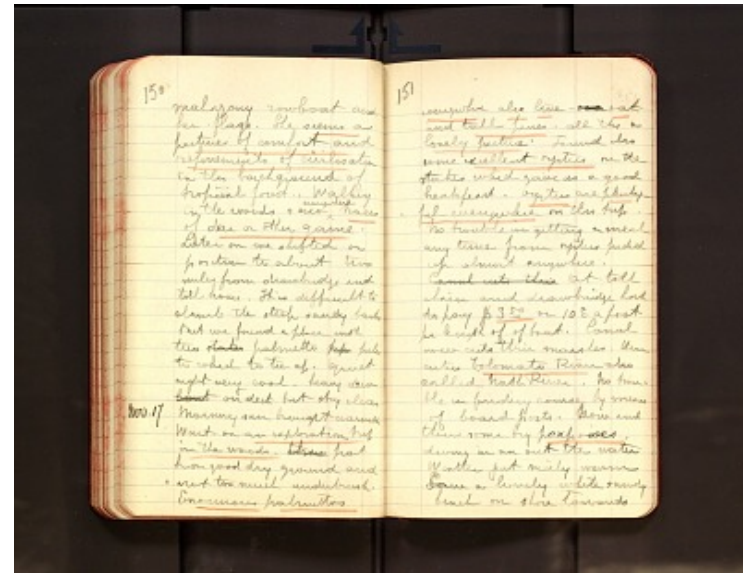 150
mahogony rowboat and
her flags. She seems a
picture of comfort and
refinements of civilisation
in the background of
tropical food. Walking
in the woods & numerous traces
of deer or other game.
Later on we shifted our
position to about two
miles from drawbridge and
toll house. It is difficult to
climb the steep sandy bank
but we found a place with
two palmetto
to which to tie up. Quiet
night very cool. heavy dew
on deck but sky clear
Nov. 17 Morning sun brought warmth
Went on an exploration trip
in the woods.
good dry ground and
not too much underbrush.
Enormous palmettos
151
everywhere also live oak
and tall pines. all this a
lovely picture. Found also
some excellent oysters on the
stakes which gave us a good
breakfast. oysters are plenty-
ful everywhere on this trip.
No trouble in getting a meal
any time from oysters picked
up almost anywhere.
At toll
chain and drawbridge had
to pay $3.50 or 10¢ a foot
per length of boat. Canal
now cuts thru marshes. Then
enter Tolomato River also
called North River. No trou-
ble in finding course by means
of board posts. Now and
then some big porpoises
diving in an out the water
Weather yet nicely warm
a lovely white sandy
beach on shore towards